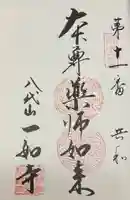 第十一番
本尊薬師如来
八代山一如寺